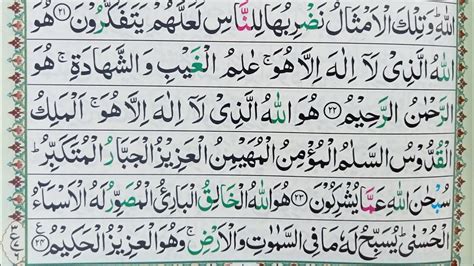 اللّٰهِ ؕ وَتِلْكَ الْاَمْثَالُ نَضْرِبُهَا لِلنَّاسِ لَعَلَّهُمْ يَتَفَكَّرُوْنَ ﴿۲۱﴾ هُوَ
اللّٰهُ الَّذِىْ لَاۤ اِلٰهَ اِلَّا هُوَ ۚ عٰلِمُ الْغَيْبِ وَالشَّهَادَةِ ۚ هُوَ
الرَّحْمٰنُ الرَّحِيْمُ ﴿۲۲﴾ هُوَ اللّٰهُ الَّذِىْ لَاۤ اِلٰهَ اِلَّا هُوَ ۚ اَلْمَلِكُ
الْقُدُّوْسُ السَّلٰمُ الْمُؤْمِنُ الْمُهَيْمِنُ الْعَزِيْزُ الْجَبَّارُ الْمُتَكَبِّرُ ؕ
سُبْحٰنَ اللّٰهِ عَمَّا يُشْرِكُوْنَ ﴿۲۳﴾ هُوَ اللّٰهُ الْخَالِقُ الْبَارِئُ الْمُصَوِّرُ لَهُ الْاَسْمَآءُ
الْحُسْنٰى ؕ يُسَبِّحُ لَهٗ مَا فِى السَّمٰوٰتِ وَالْاَرْضِ ۚ وَهُوَ الْعَزِيْزُ الْحَكِيْمُ ﴿۲۴﴾